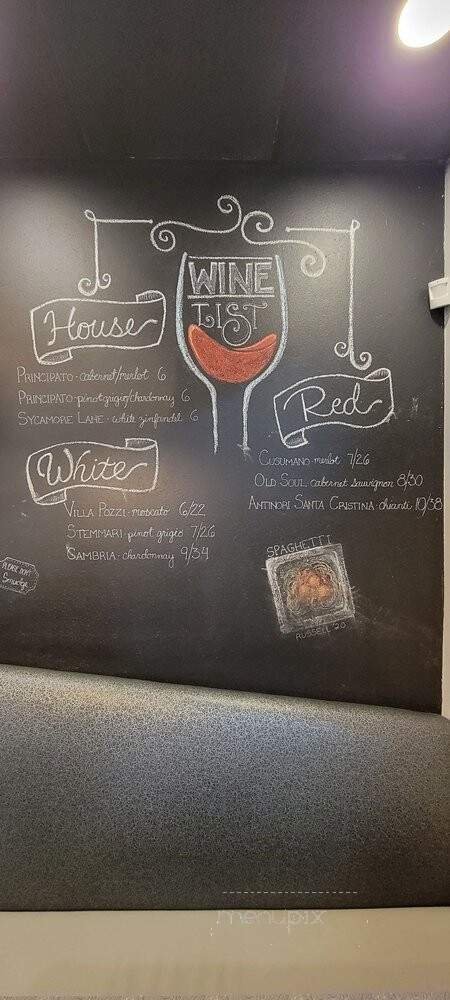 WINE
LIST
House
PRINCIPATO - cabernet/merlot 6
PRINCIPATO - pinot grigio/chardonnay 6
SYCAMORE LANE - white zinfandel 6
White
VILLA POZZI - moscato 6/22
STEMMARI - pinot grigio 7/26
GAMBRIA - chardonnay 9/34
Red
CUSUMANO - merlot 7/26
OLD SOUL cabernet sauvignon 8/30
ANTINORI SANTA CRISTINA - chianti 10/38
PLEASE DON'T
Smudge
SPAGHETTI
RUSSELL '20
menupix